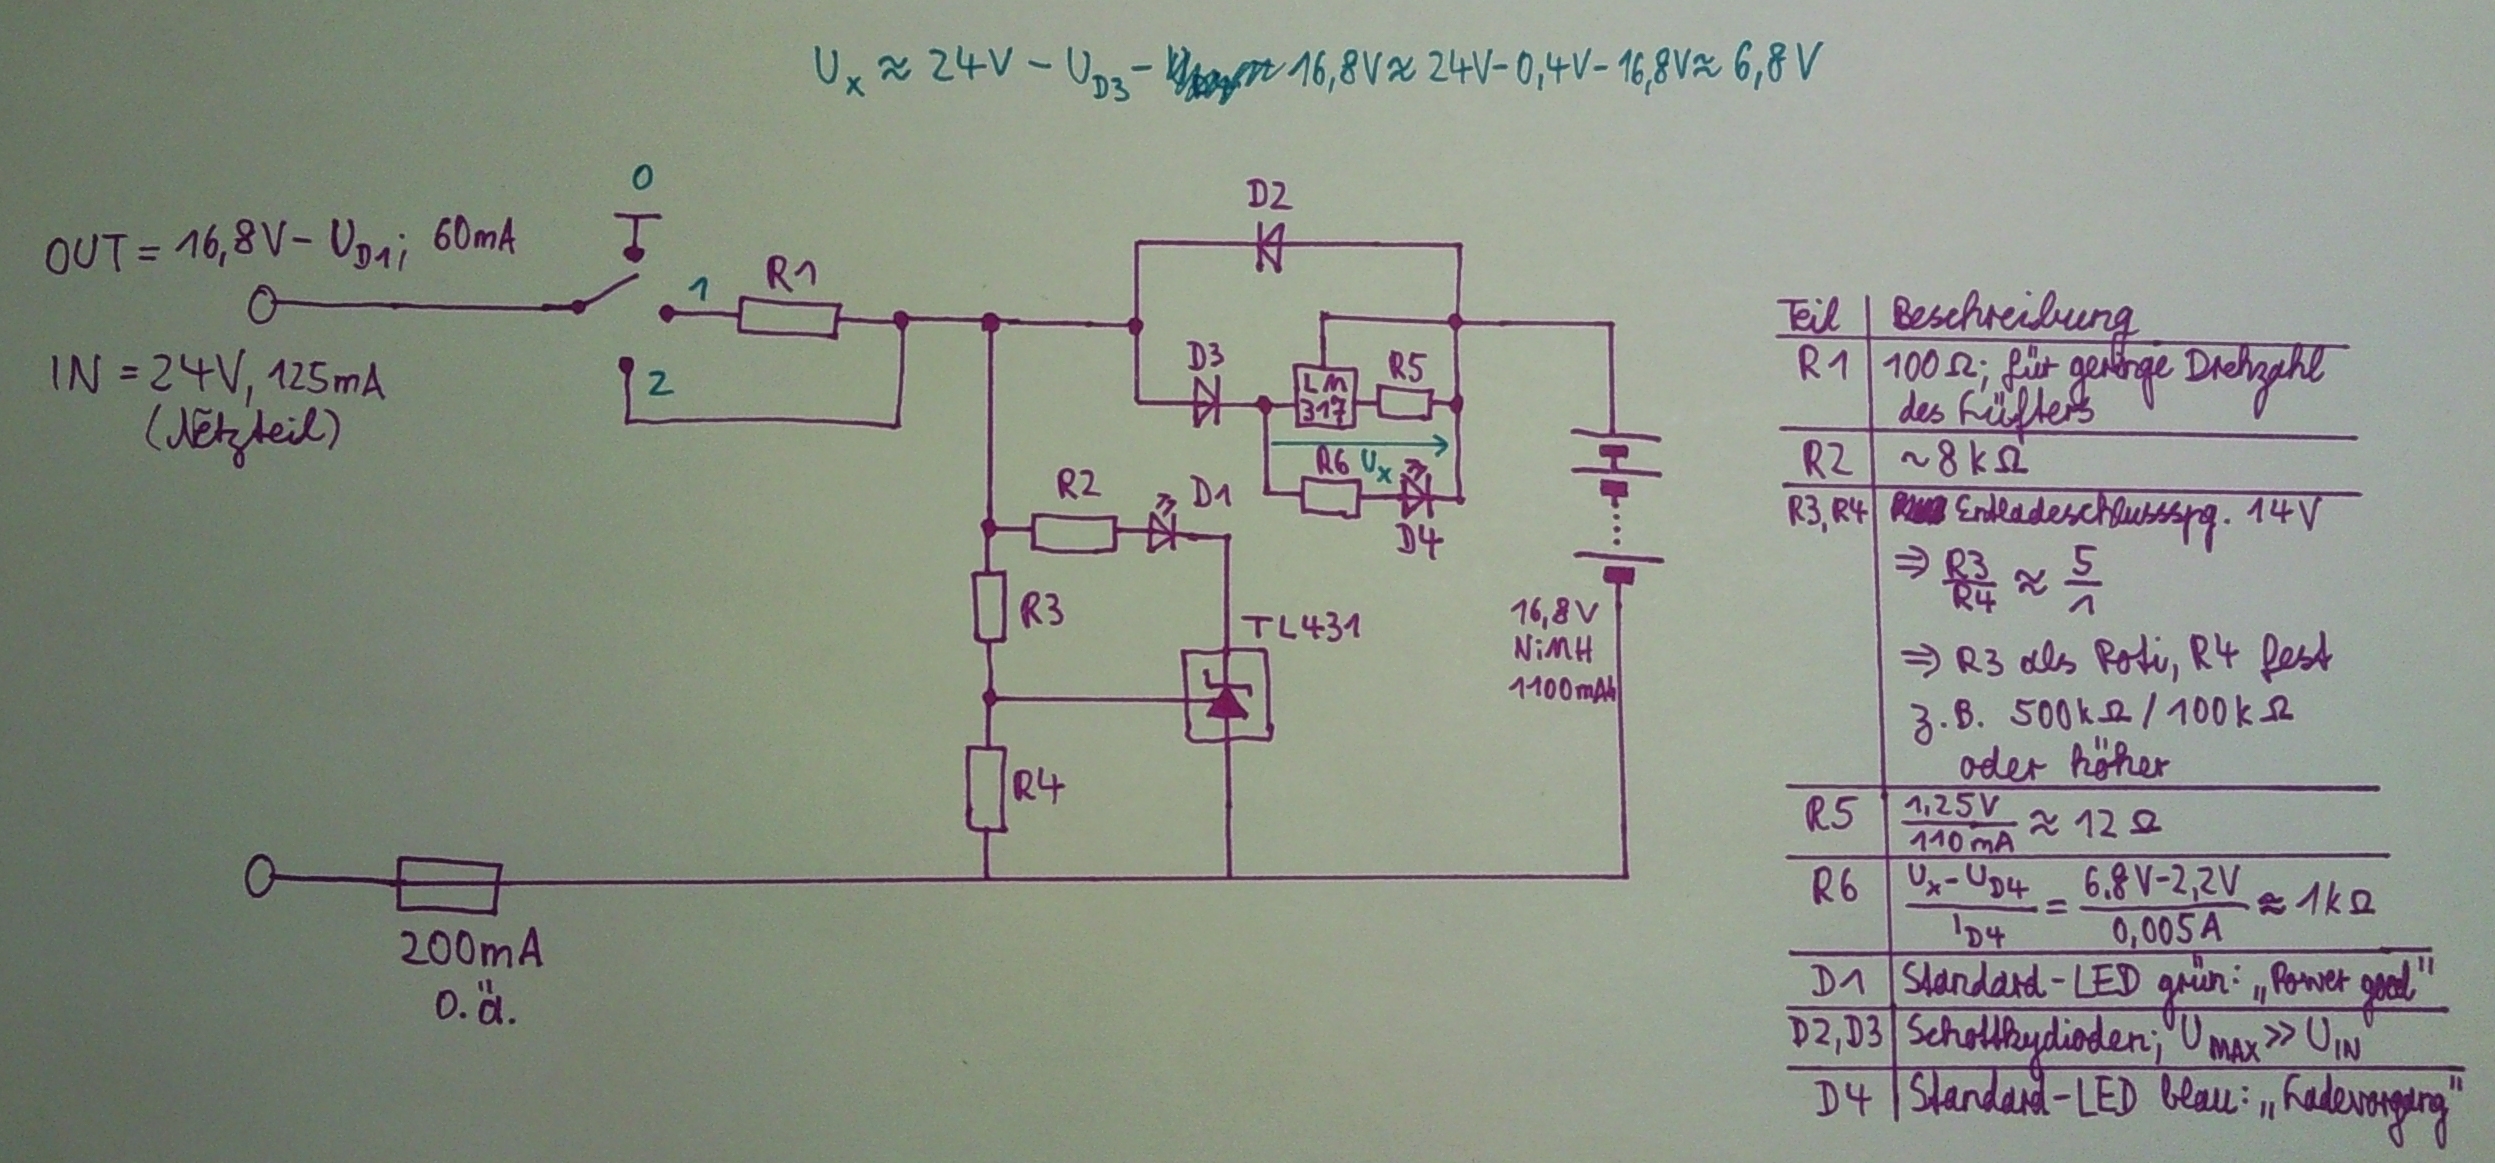 Uₓ ≈ 24V − U_D3 − 16,8V ≈ 24V−0,4V−16,8V ≈ 6,8V
0
OUT = 16,8V − U_D1; 60mA
1
R1
D2
IN = 24V, 125mA
(Netzteil)
2
D3
LM
317
R5
R6
Uₓ
D4
R2
D1
R3
TL431
R4
16,8V
NiMH
1100mAh
200mA
o.ä.
Teil Beschreibung
R1 100Ω; für geringe Drehzahl
des Lüfters
R2 ~8kΩ
R3,R4 Entladeschlussspg. 14V
⇒ R3/R4 ≈ 5/1
⇒ R3 als Poti, R4 fest
z.B. 500kΩ/100kΩ
oder höher
R5 1,25V/110mA ≈ 12Ω
R6 Uₓ−U_D4/I_D4 = 6,8V−2,2V/0,005A ≈ 1kΩ
D1 Standard-LED grün: „Power good"
D2,D3 Schottkydioden; U_MAX >> U_IN
D4 Standard-LED blau: „Ladevorgang"